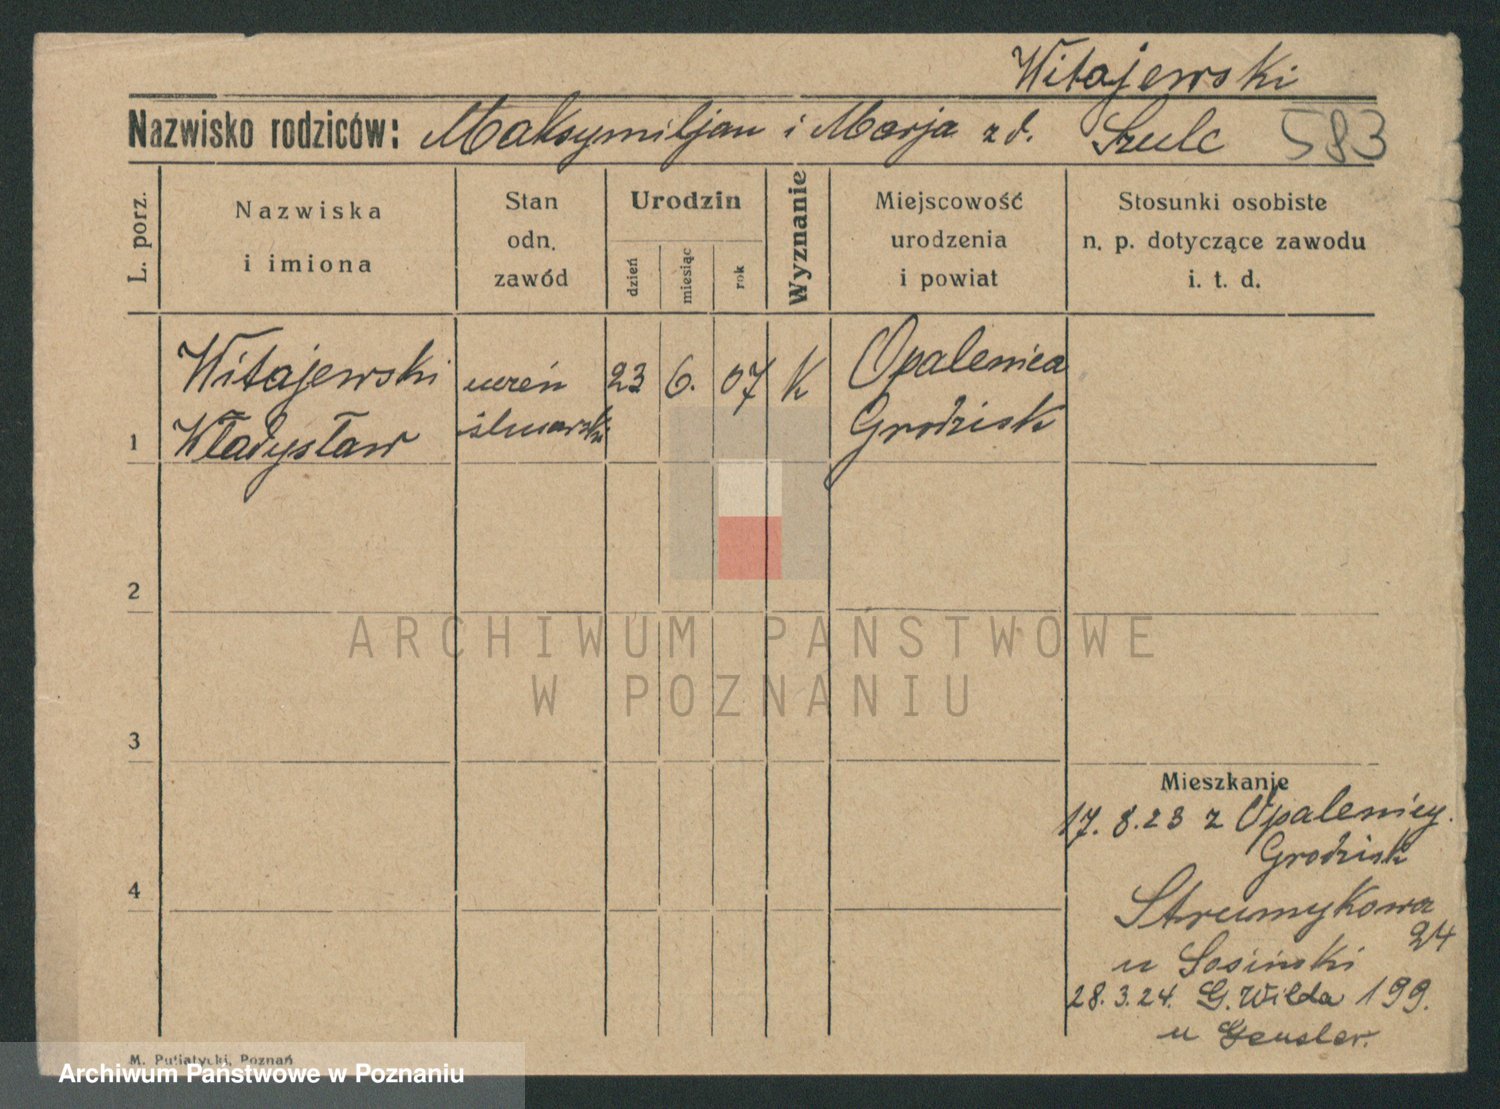 Witajewski
Nazwisko rodziców: Maksymiljan i Marja z d. Szulc 583
L. porz.
Nazwiska
i imiona
Stan
odn.
zawód
Urodzin
dzień
miesiąc
rok
Wyznanie
Miejscowość
urodzenia
i powiat
Stosunki osobiste
n. p. dotyczące zawodu
i. t. d.
1
Witajewski
Władysław
uczeń
ślusarski
23 6. 07 K
Opalenica
Grodzisk
2
3
4
Mieszkanie
17. 8. 23 z Opalenicy.
Grodzisk
Strumykowa
24
u Sosiński
28. 3. 24. G. Wilda 199.
u Gensler.
M. Putiatycki, Poznań
ARCHIWUM PAŃSTWOWE
W POZNANIU
Archiwum Państwowe w Poznaniu